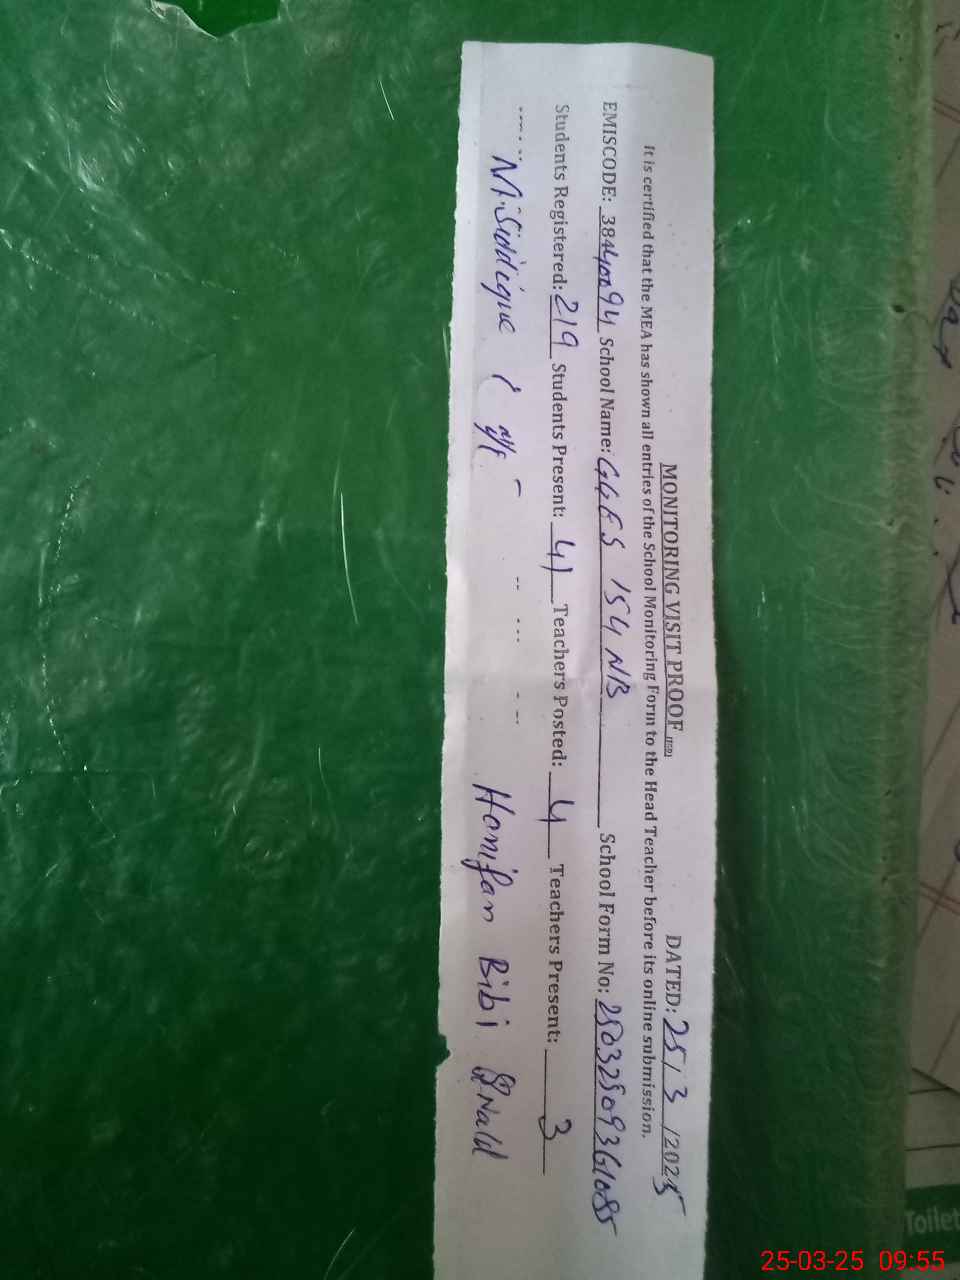 MONITORING VISIT PROOF DATED: 25/3/2025
It is certified that the MEA has shown all entries of the School Monitoring Form to the Head Teacher before its online submission.
EMISCODE: 38440094 School Name: GGES 154 NB School Form No:
Students Registered: 219 Students Present: 41 Teachers Posted: 4 Teachers Present: 3
M.Siddique Hanifan Bibi
Toilet
25-03-25 09:55